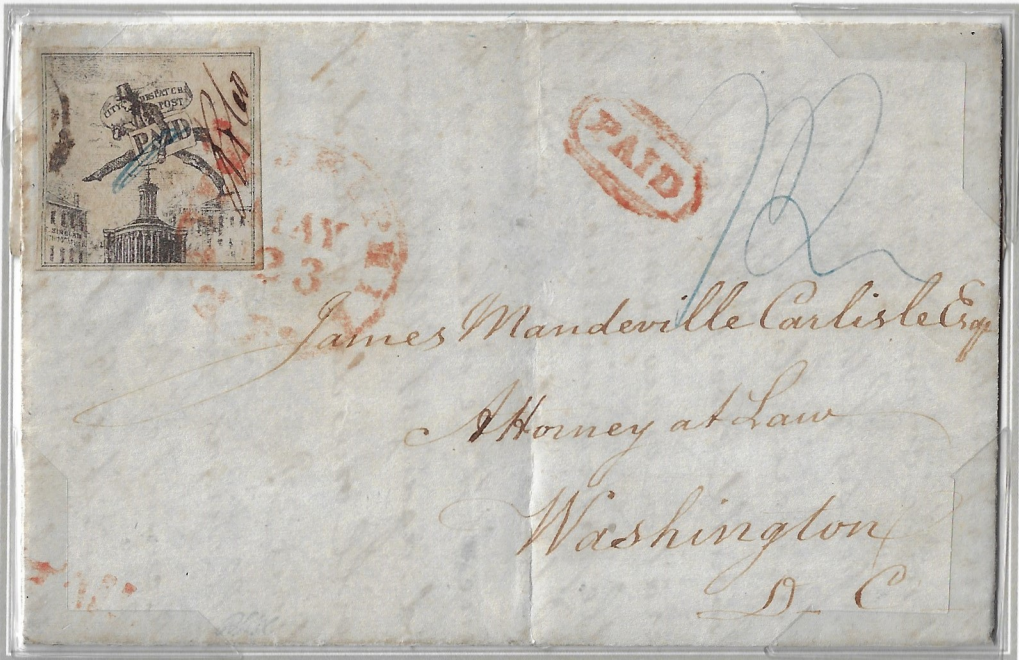 CITY DISPATCH
POST
PAID
PAID
MAY
23
James Mandeville Carlisle Esqr
Attorney at Law
Washington
D. C